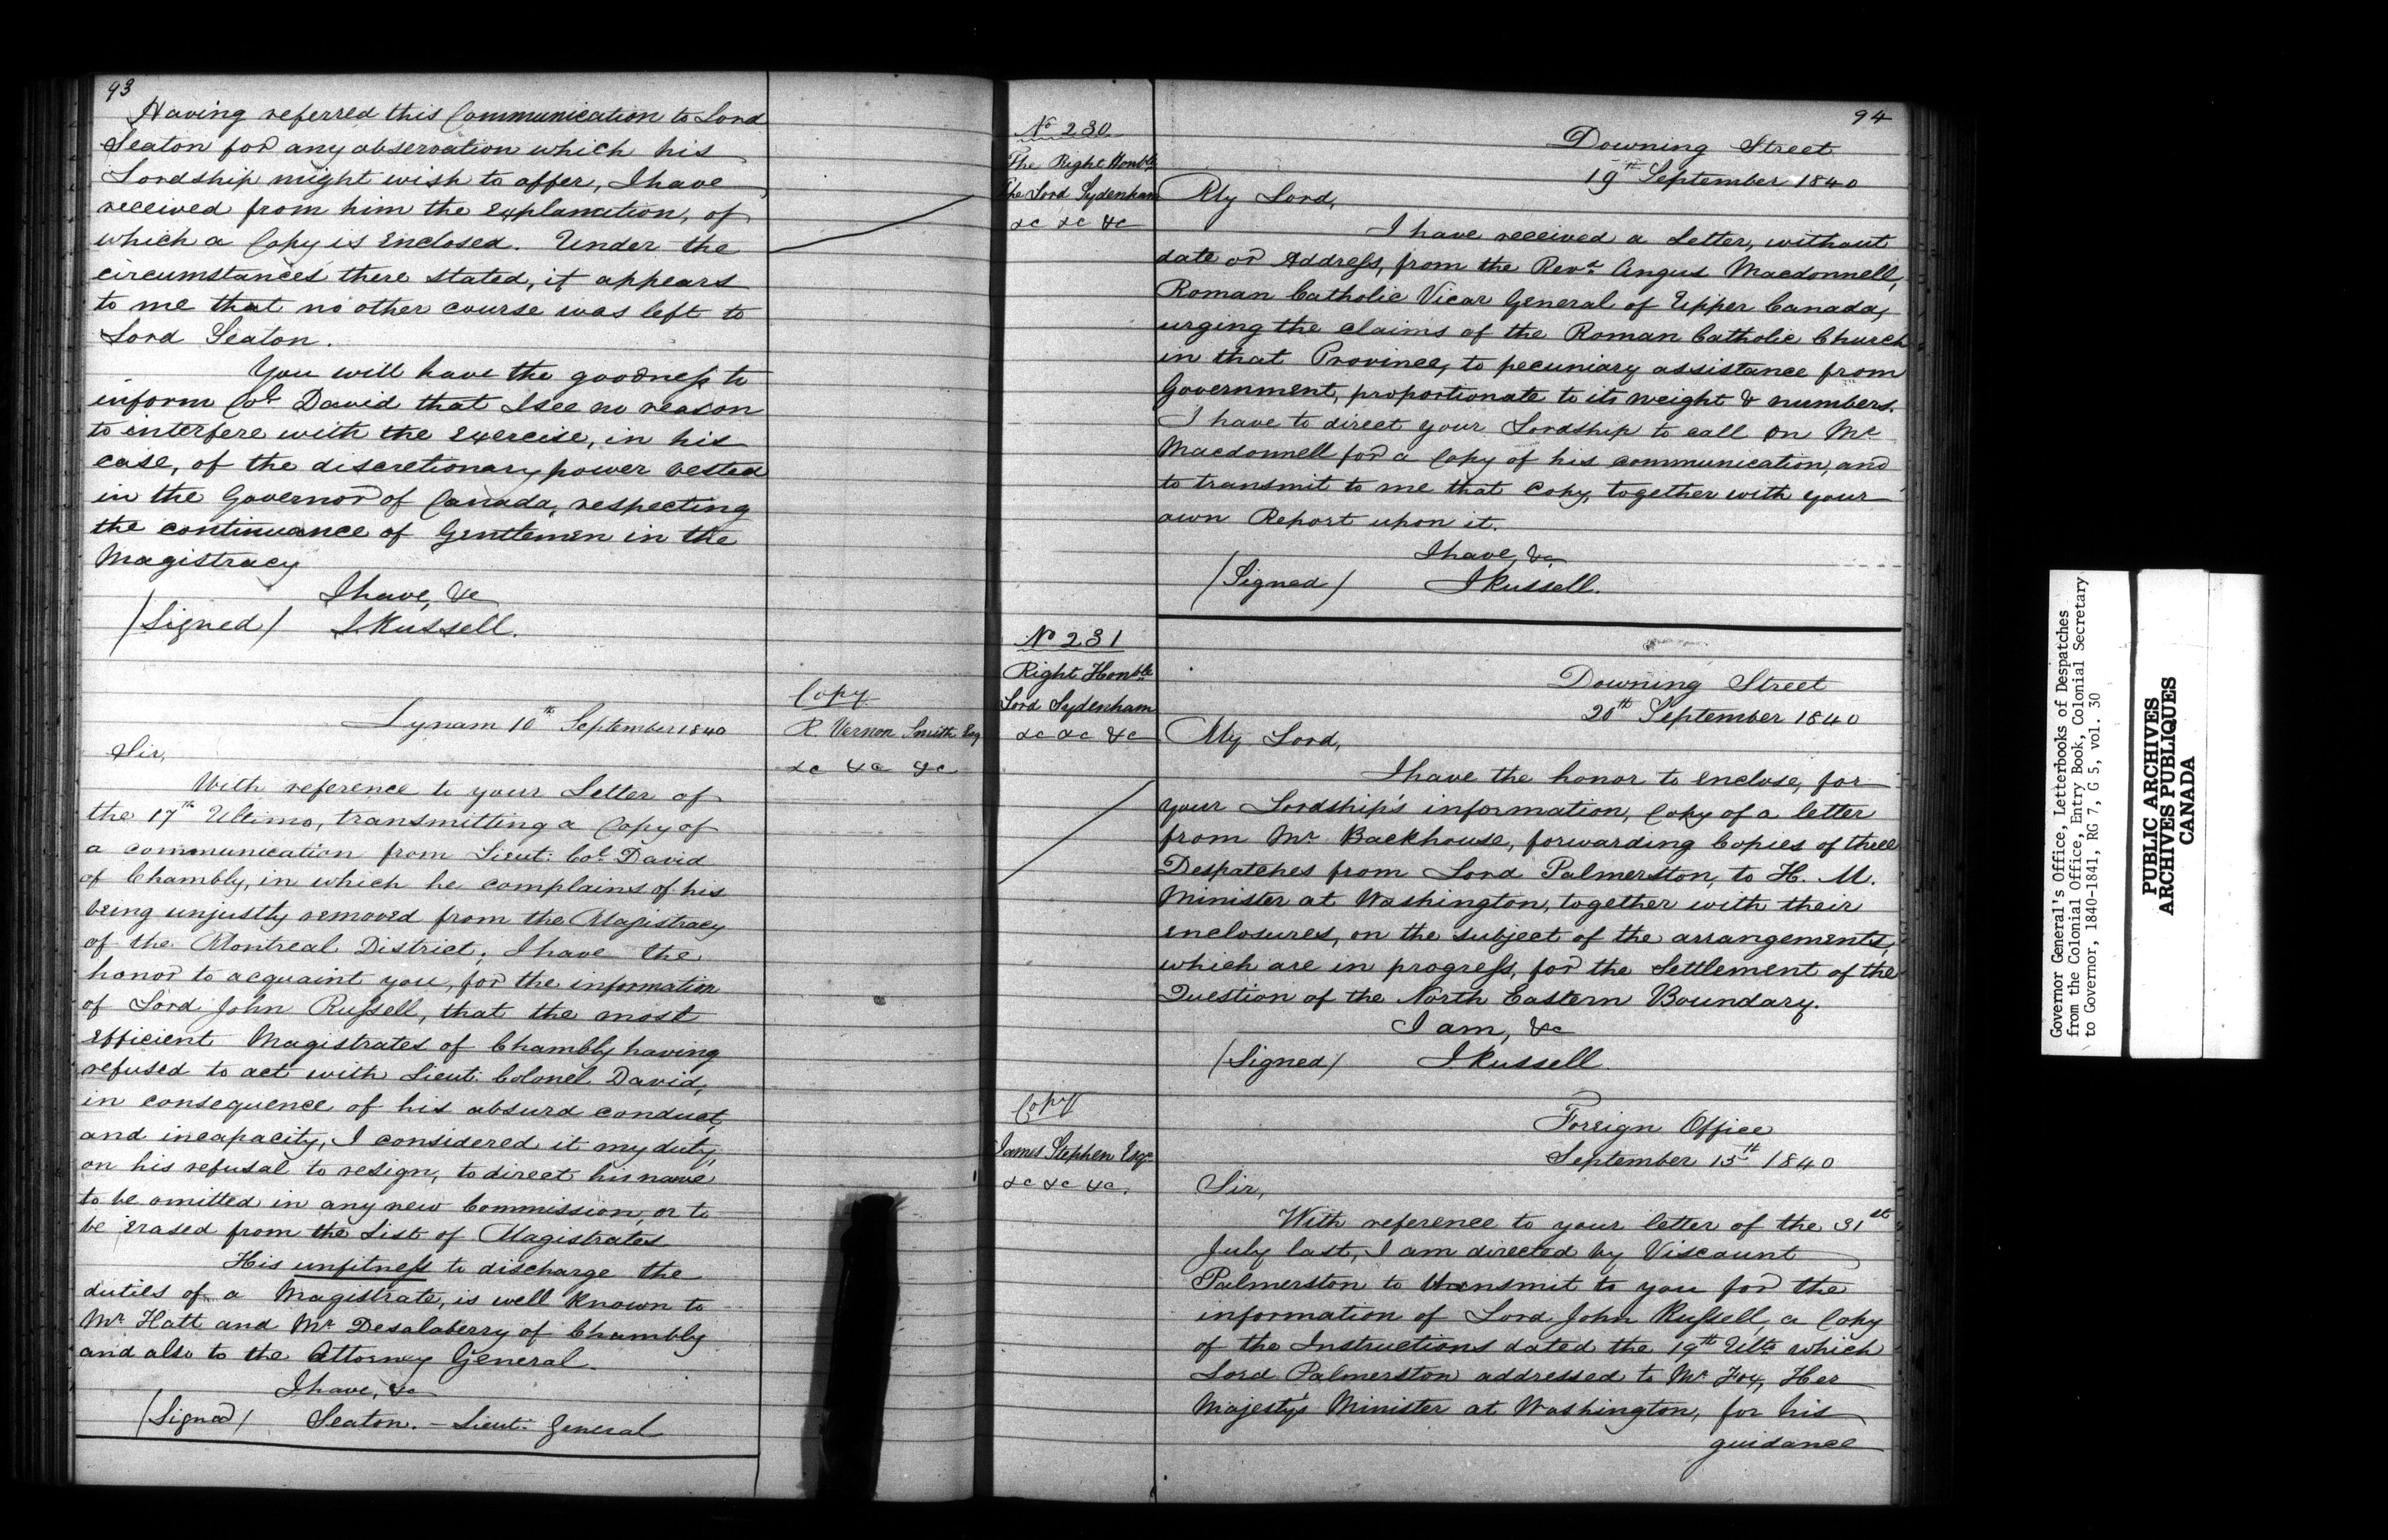 93
Having referred this Communication to Lord
Seaton for any observation which his
Lordship might wish to offer, I have
received from him the explanation, of
which a Copy is enclosed. Under the
circumstances there stated, it appears
to me that no other course was left to
Lord Seaton.
You will have the goodness to
inform Col. David that I see no reason
to interfere with the exercise, in his
case, of the discretionary power vested
in the Governor of Canada, respecting
the continuance of Gentlemen in the
Magistracy
I have, &c
/Signed/ J. Russell.
Copy
R. Vernon Smith Esq
&c &c &c
Lynam 10th September 1840
Sir,
With reference to your Letter of
the 17th Ultimo, transmitting a Copy of
a communication from Lieut: Col. David
of Chambly, in which he complains of his
being unjustly removed from the Magistracy
of the Montreal District; I have the
honor to acquaint you, for the information
of Lord John Russell, that the most
efficient Magistrates of Chambly having
refused to act with Lieut. Colonel David,
in consequence of his absurd conduct,
and incapacity, I considered it my duty,
on his refusal to resign, to direct his name
to be omitted in any new Commission, or to
be erased from the List of Magistrates
His unfitness to discharge the
duties of a Magistrate, is well known to
Mr Hatt and Mr Desalaberry of Chambly
and also to the Attorney General.
I have, &c
/Signed/ Seaton. - Lieut: General
94
No 230
The Right Honble
The Lord Sydenham
&c &c &c
Downing Street
19th September 1840
My Lord,
I have received a Letter, without
date or Address, from the Revd. Angus Macdonnell,
Roman Catholic Vicar General of Upper Canada,
urging the claims of the Roman Catholic Church
in that Province, to pecuniary assistance from
Government, proportionate to its weight & numbers.
I have to direct your Lordship to call on Mr
Macdonnell for a Copy of his communication, and
to transmit to me that Copy, together with your
own Report upon it.
I have, &c
/Signed/ J Russell.
No 231
Right Honble
Lord Sydenham
&c &c &c
Downing Street
20th September 1840
My Lord,
I have the honor to enclose, for
your Lordship's information, Copy of a letter
from Mr. Backhouse, forwarding Copies of three
Despatches from Lord Palmerston, to H. M.
Minister at Washington, together with their
enclosures, on the subject of the arrangements,
which are in progress, for the Settlement of the
Question of the North Eastern Boundary.
I am, &c
/Signed/ J Russell.
Copy
James Stephen Esqr
&c &c &c.
Foreign Office
September 15th 1840
Sir,
With reference to your letter of the 31st
July last, I am directed by Viscount
Palmerston to transmit to you for the
information of Lord John Russell, a Copy
of the Instructions dated the 19th Ulto which
Lord Palmerston addressed to Mr Fox, Her
Majesty's Minister at Washington, for his
guidance
Governor General's Office, Letterbooks of Despatches
from the Colonial Office, Entry Book, Colonial Secretary
to Governor, 1840-1841, RG 7, G 5, vol. 30
PUBLIC ARCHIVES
ARCHIVES PUBLIQUES
CANADA